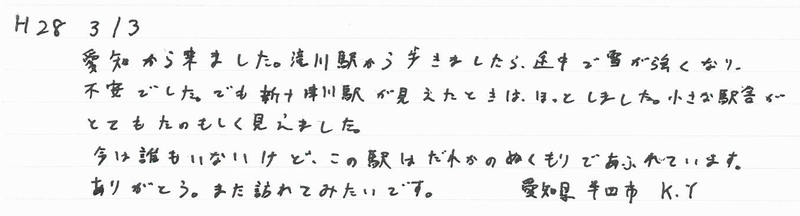 H28 3/3
愛知から来ました。滝川駅から歩きましたら、途中で雪が強くなり、
不安でした。でも新十津川駅が見えたときは、ほっとしました。小さな駅舎が
とてもたのもしく見えました。
今は誰もいないけど、この駅はだれかのぬくもりであふれています。
ありがとう。また訪れてみたいです。 愛知県 半田市 K.Y